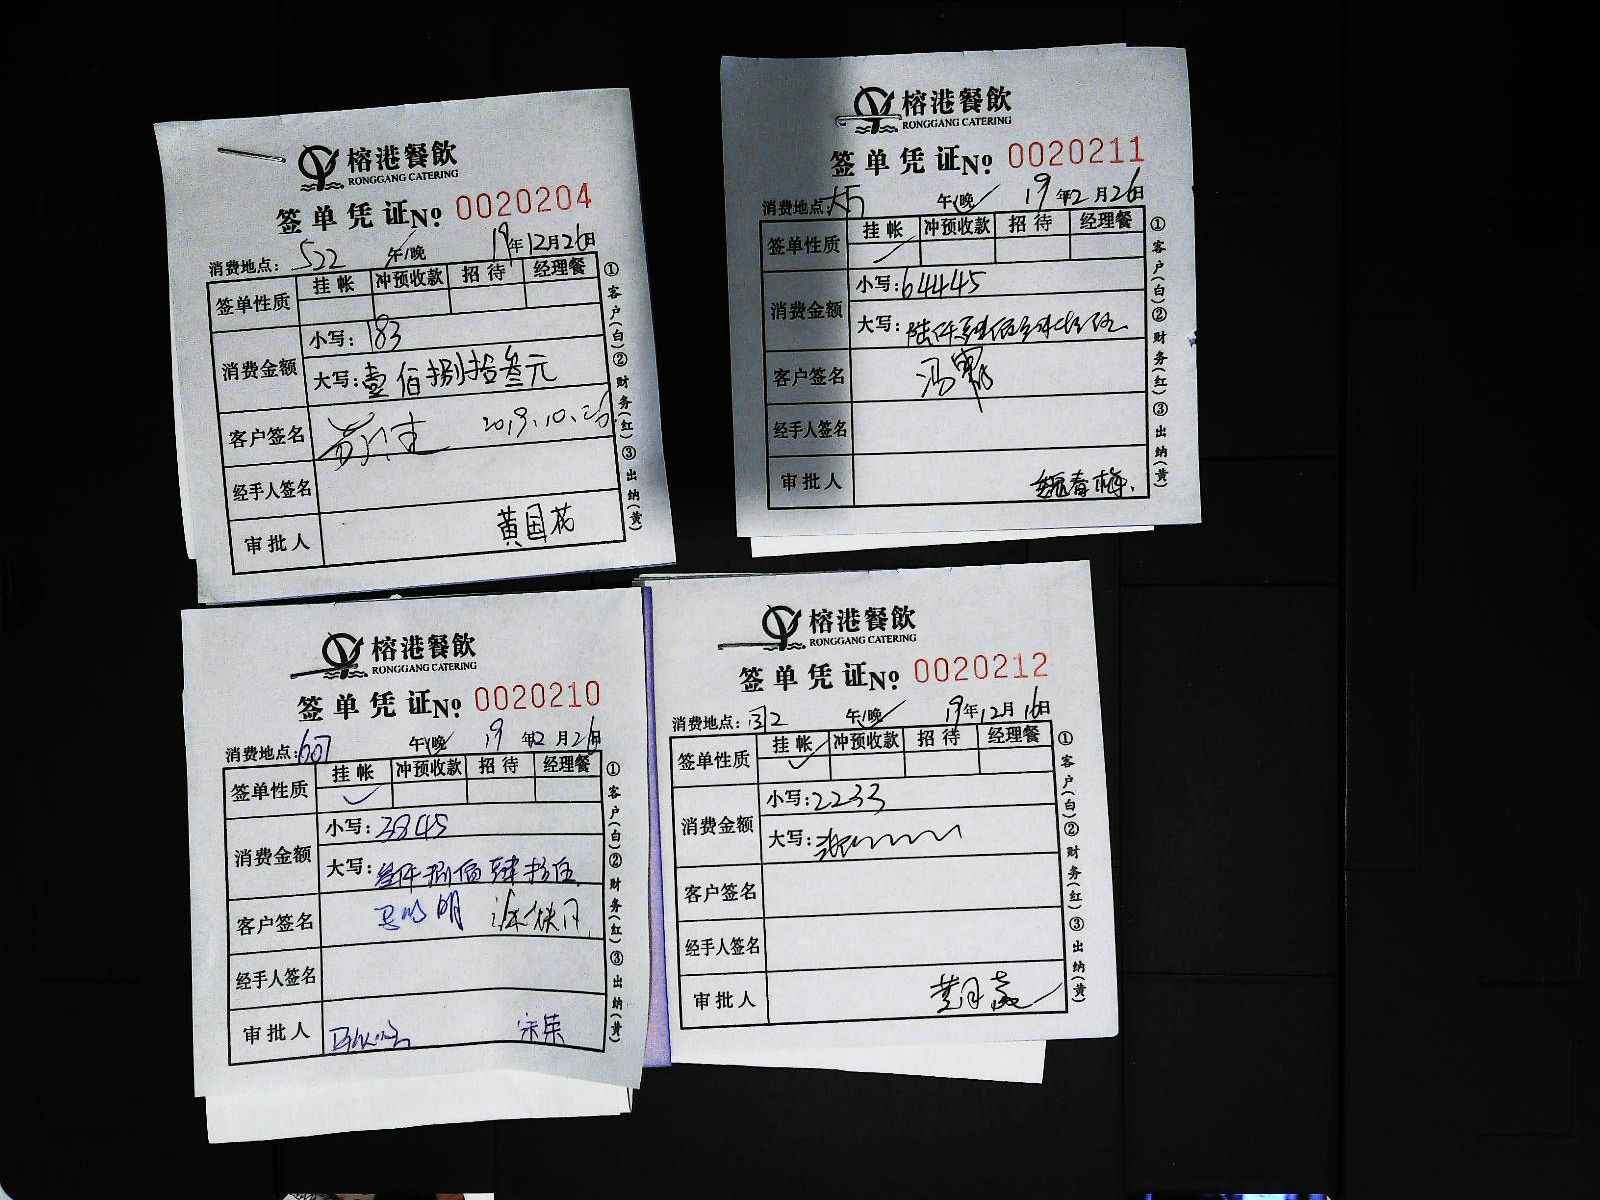 榕港餐飲
RONGGANG CATERING
签单凭证No. 0020204
消费地点: 522 午/晚 19年12月26日
签单性质 挂帐 冲预收款 招待 经理餐
消费金额 小写: 183
大写: 壹佰捌拾叁元
客户签名 2019.10.26
经手人签名
审批人 黄国花
①客户(白)②财务(红)③出纳(黄)
榕港餐飲
RONGGANG CATERING
签单凭证No. 0020211
消费地点: 午/晚 19年12月26日
签单性质 挂帐 冲预收款 招待 经理餐
消费金额 小写: 6444.5
大写:
客户签名 冯
经手人签名
审批人 魏春梅
①客户(白)②财务(红)③出纳(黄)
榕港餐飲
RONGGANG CATERING
签单凭证No. 0020210
消费地点: 607 午/晚 19年12月26日
签单性质 挂帐 冲预收款 招待 经理餐
消费金额 小写: 3845
大写: 叁仟捌佰肆拾伍
客户签名
经手人签名
审批人 宋荣
①客户(白)②财务(红)③出纳(黄)
榕港餐飲
RONGGANG CATERING
签单凭证No. 0020212
消费地点: 午/晚 19年12月16日
签单性质 挂帐 冲预收款 招待 经理餐
消费金额 小写: 2233
大写:
客户签名
经手人签名
审批人
①客户(白)②财务(红)③出纳(黄)